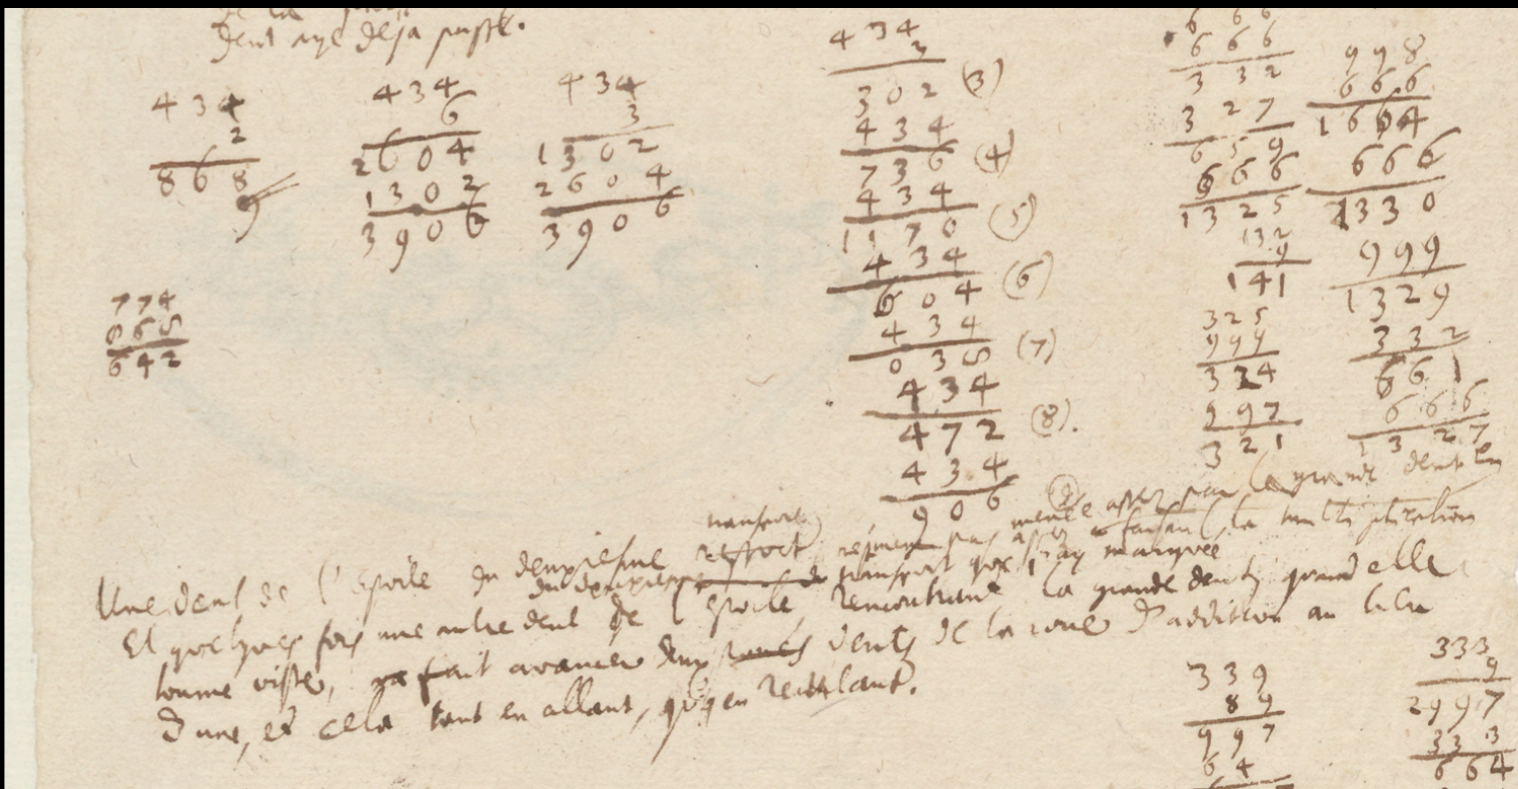 de la
dent aye deja passé.
4 3 4
2
8 6 8
4 3 4
6
2 6 0 4
1 3 0 2
3 9 0 6
4 3 4
3
1 3 0 2
2 6 0 4
3 9 0 6
7 7 4
8 6 5
6 4 2
4 3 4
3
3 0 2 (3)
4 3 4
7 3 6 (4)
4 3 4
1 1 7 0 (5)
4 3 4
6 0 4 (6)
4 3 4
0 3 8 (7)
4 3 4
4 7 2 (8).
4 3 4
9 0 6
6 6 6
6 6 6
3 3 2
3 2 7
6 5 9
6 6 6
1 3 2 5
1 3 2
9
1 4 1
3 2 5
9 9 9
3 2 4
9 9 7
3 2 1
9 9 8
6 6 6
1 6 6 4
6 6 6
1 3 3 0
9 9 9
1 3 2 9
3 3 2
6 6 1
6 6 6
1 3 2 7
Une dent de l'estoile du deuxiesme transport assez par la grande dent en
faisant la multiplication
Et quelques fois une autre dent de l'estoile du transport que j'ay marquée rencontrant la grande dent, quand elle
tourne viste, fait avancer deux dents de la roue d'addition au lieu
d'une, et cela tant en allant, qu'en reculant.
3 3 9
8 9
9 9 7
6 4
3 3 3
9
2 9 9 7
3 3 3
6 6 4